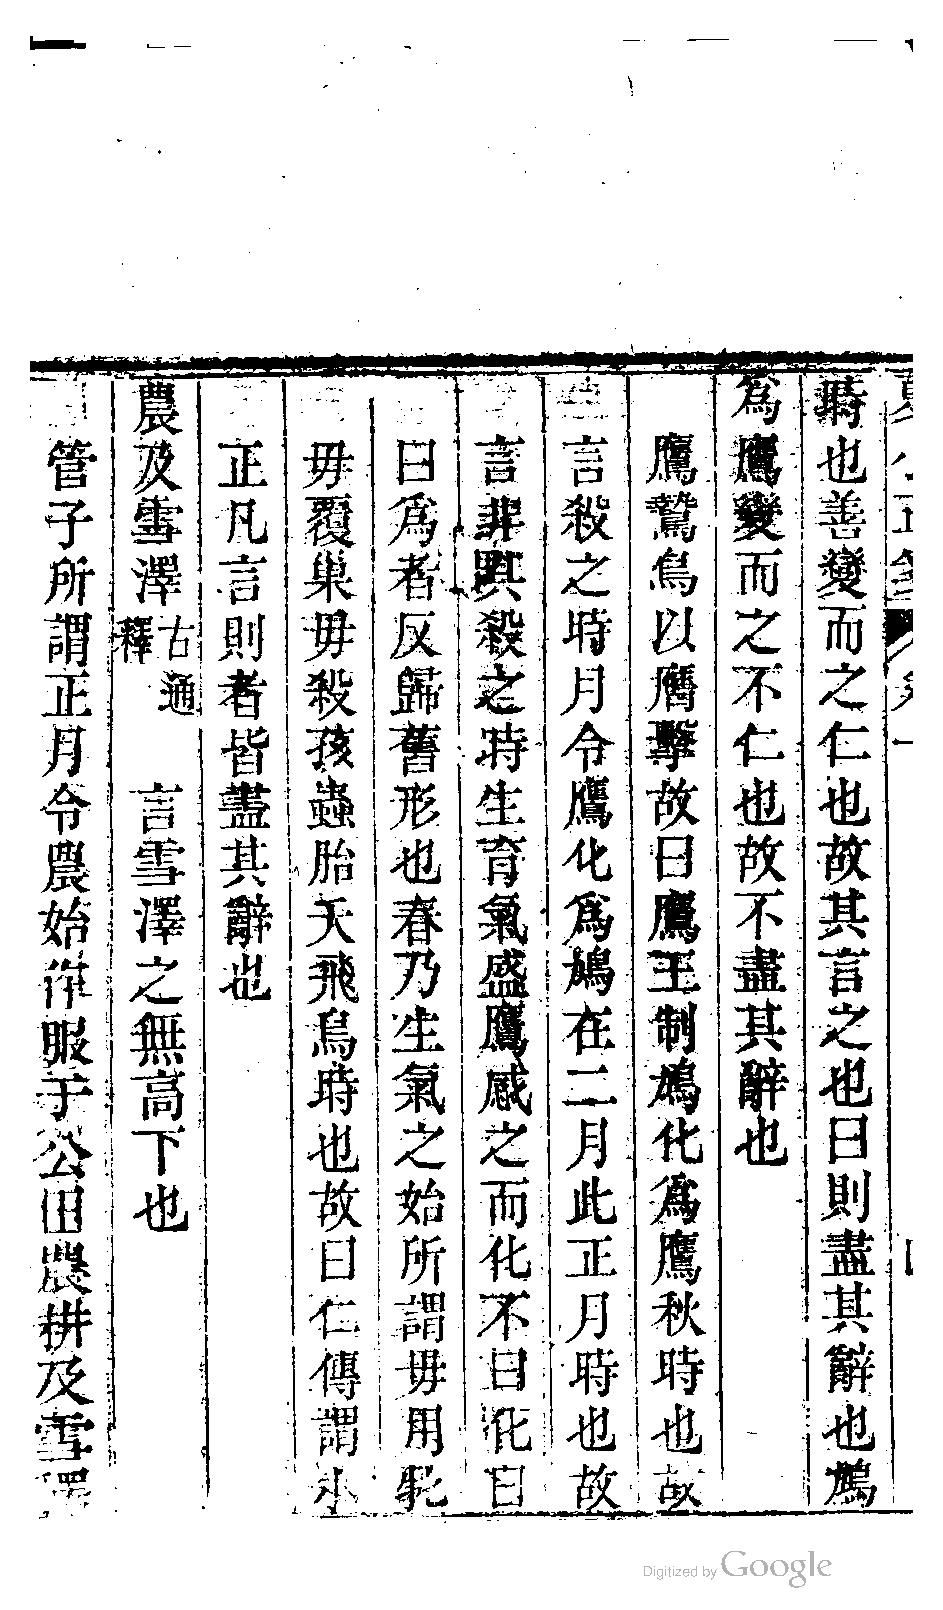 時也善變而之仁也故其言之也曰則盡其辭也鳩
爲鷹變而之不仁也故不盡其辭也
鷹鷙鳥以膺擊故曰鷹王制鳩化爲鷹秋時也故
言殺之時月令鷹化爲鳩在二月此正月時也故
言非其殺之時生育氣盛鷹感之而化不曰化曰
曰爲者反歸舊形也春乃生氣之始所謂毋用牝
毋覆巢毋殺孩蟲胎夭飛鳥時也故曰仁傳謂小
正凡言則者皆盡其辭也
農及雪澤古通釋 言雪澤之無高下也
管子所謂正月令農始作服于公田農耕及雪澤
Digitized by Google